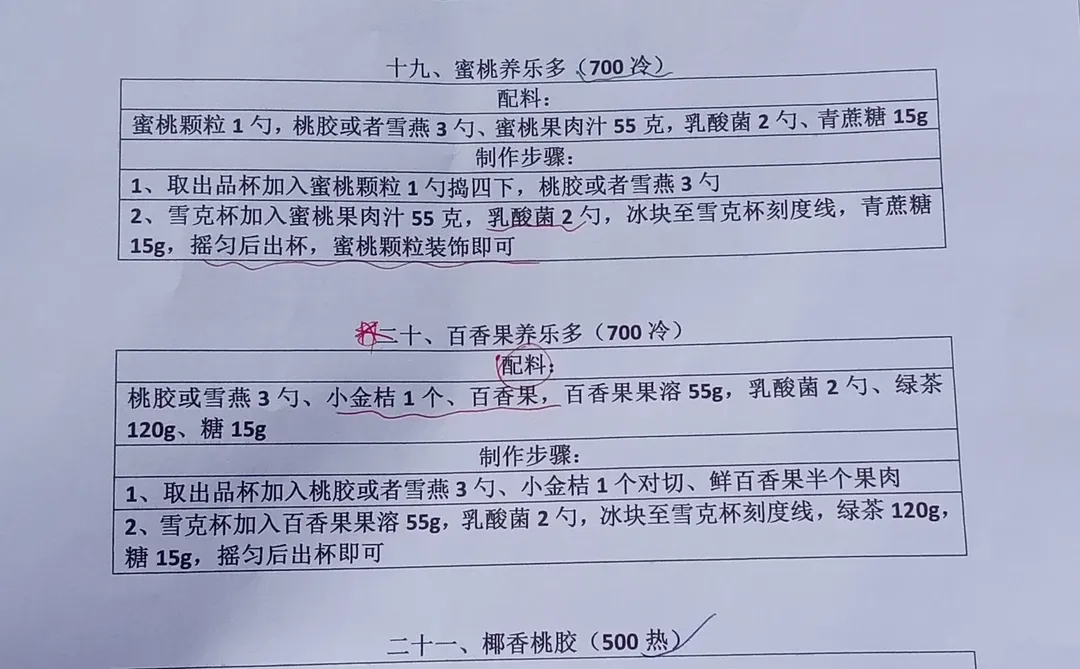 十九、蜜桃养乐多（700 冷）
配料：
蜜桃颗粒 1 勺，桃胶或者雪燕 3 勺、蜜桃果肉汁 55 克，乳酸菌 2 勺、青蔗糖 15g
制作步骤：
1、取出品杯加入蜜桃颗粒 1 勺捣四下，桃胶或者雪燕 3 勺
2、雪克杯加入蜜桃果肉汁 55 克，乳酸菌 2 勺，冰块至雪克杯刻度线，青蔗糖
15g，摇匀后出杯，蜜桃颗粒装饰即可
二十、百香果养乐多（700 冷）
配料：
桃胶或雪燕 3 勺、小金桔 1 个、百香果，百香果果溶 55g，乳酸菌 2 勺、绿茶
120g、糖 15g
制作步骤：
1、取出品杯加入桃胶或者雪燕 3 勺、小金桔 1 个对切、鲜百香果半个果肉
2、雪克杯加入百香果果溶 55g，乳酸菌 2 勺，冰块至雪克杯刻度线，绿茶 120g，
糖 15g，摇匀后出杯即可
二十一、椰香桃胶（500 热）